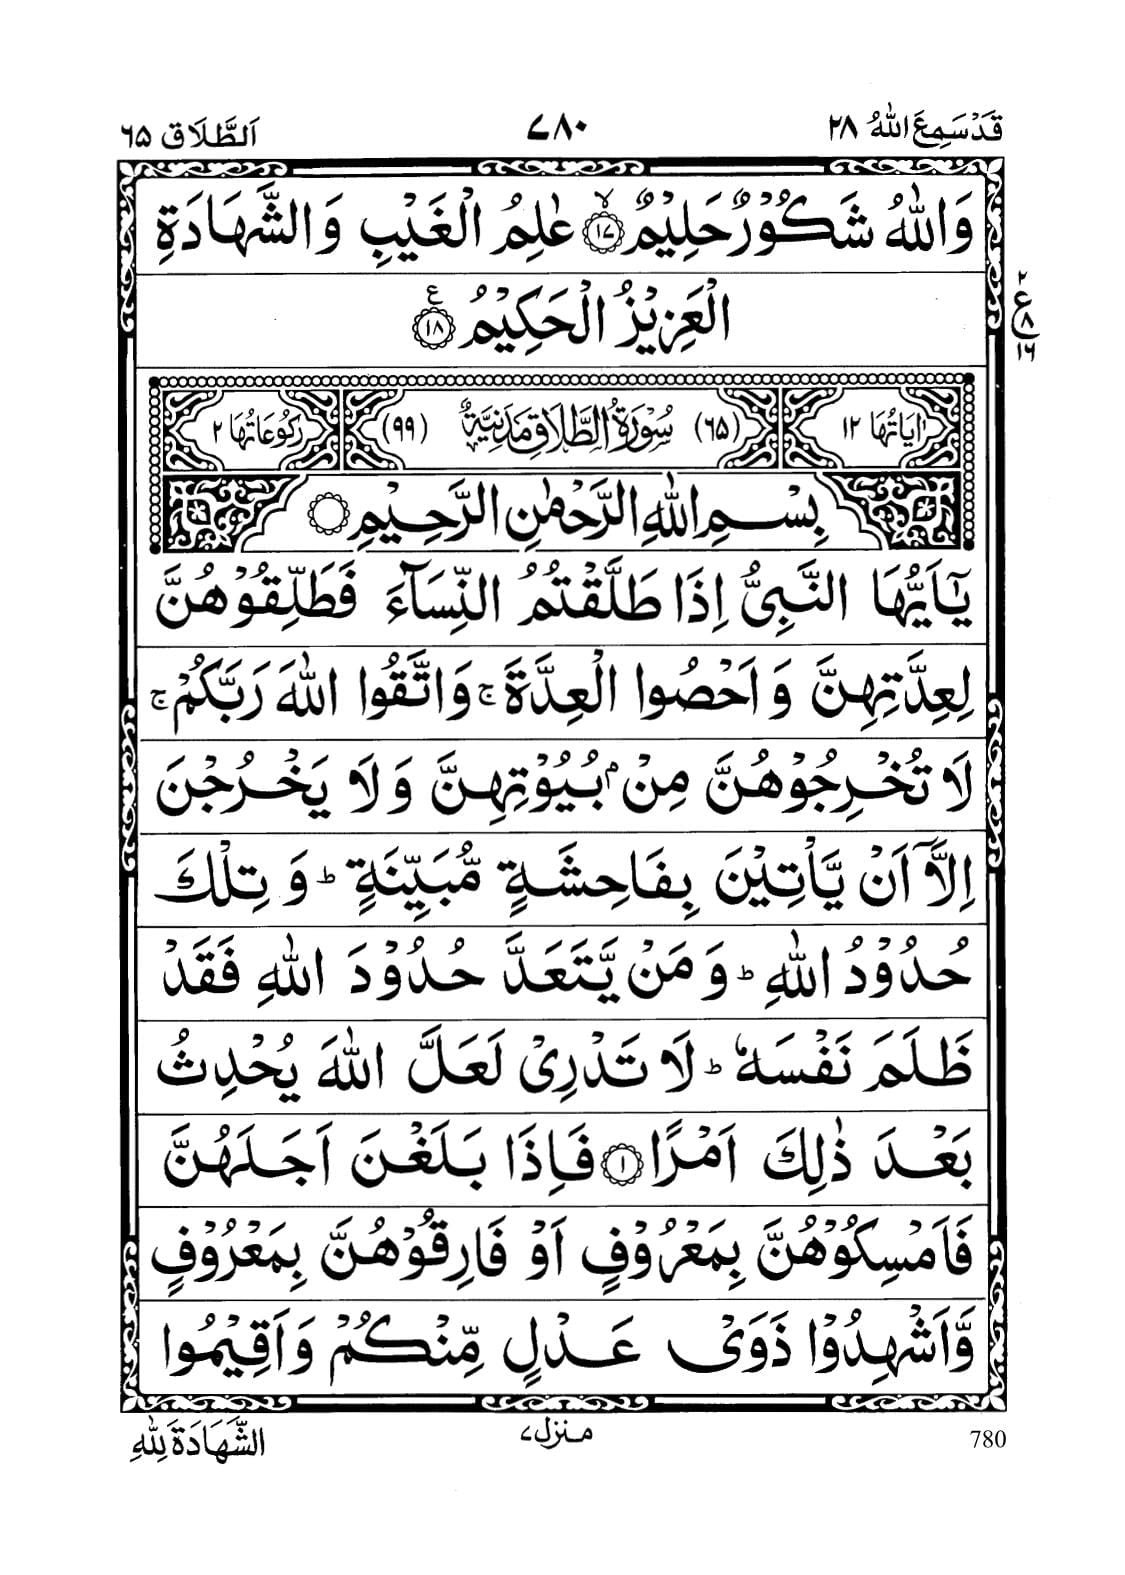 قَدْ سَمِعَ اللّٰهُ ۲۸
۷۸۰
اَلطَّلَاق ۶۵
وَاللّٰهُ شَكُوْرٌ حَلِيْمٌ ۙ‏ ﴿۱۷﴾ عٰلِمُ الْغَيْبِ وَالشَّهَادَةِ
الْعَزِيْزُ الْحَكِيْمُ ﴿۱۸﴾ ع
۲
ع
۸
۱۶
اٰيَاتُهَا ۱۲ (۶۵) سُوْرَةُ الطَّلَاقِ مَدَنِيَّةٌ (۹۹) رُكُوْعَاتُهَا ۲
بِسْمِ اللّٰهِ الرَّحْمٰنِ الرَّحِيْمِ
يٰۤاَيُّهَا النَّبِىُّ اِذَا طَلَّقْتُمُ النِّسَآءَ فَطَلِّقُوْهُنَّ
لِعِدَّتِهِنَّ وَ اَحْصُوا الْعِدَّةَ ۚ وَاتَّقُوا اللّٰهَ رَبَّكُمْ ۚ
لَا تُخْرِجُوْهُنَّ مِنْۢ بُيُوْتِهِنَّ وَلَا يَخْرُجْنَ
اِلَّاۤ اَنْ يَّاْتِيْنَ بِفَاحِشَةٍ مُّبَيِّنَةٍ ؕ وَ تِلْكَ
حُدُوْدُ اللّٰهِ ؕ وَمَنْ يَّتَعَدَّ حُدُوْدَ اللّٰهِ فَقَدْ
ظَلَمَ نَفْسَهٗ ؕ لَا تَدْرِىْ لَعَلَّ اللّٰهَ يُحْدِثُ
بَعْدَ ذٰلِكَ اَمْرًا ﴿۱﴾ فَاِذَا بَلَغْنَ اَجَلَهُنَّ
فَاَمْسِكُوْهُنَّ بِمَعْرُوْفٍ اَوْ فَارِقُوْهُنَّ بِمَعْرُوْفٍ
وَّاَشْهِدُوْا ذَوَىْ عَدْلٍ مِّنْكُمْ وَاَقِيْمُوا
الشَّهَادَةَ لِلّٰهِ
منزل۷
780